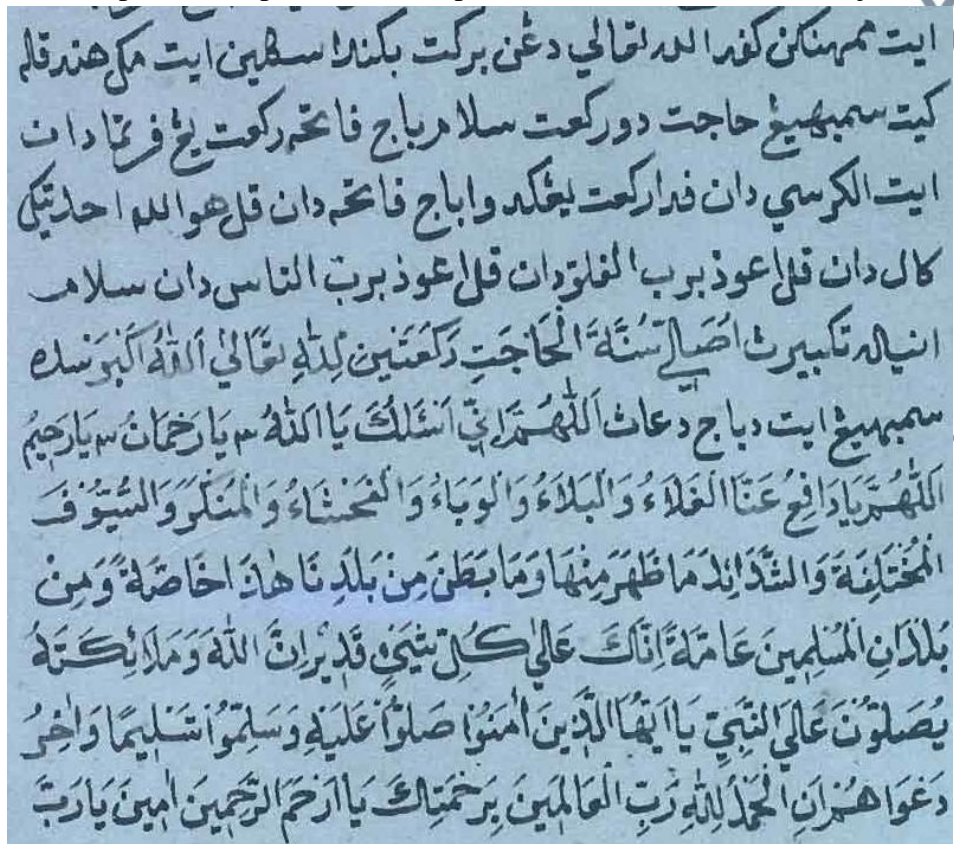 ايت ممهناکن کفد الله تعالي دڠن برکت بکندا سکلين ايت مک هندقله
کيت سمبهيڠ حاجت دو رکعت سلام باج فاتحه رکعت يڠ فرتما دان
ايت الکرسي دان فدا رکعت يڠکدوا باج فاتحه دان قل هو الله احد تيڬ
کال دان قل اعوذ برب الفلق دان قل اعوذ برب الناس دان سلام
انياله تکبيرث اُصَلِّي سُنَّةَ الْحَاجَتِ رَکْعَتَيْنِ لِلّٰهِ تَعَالٰي اَللّٰهُ اَکْبَرْ سده
سمبهيڠ ايت دباج دعاث اَللّٰهُمَّ اِنِّي اَسْئَلُكَ يَا اَللّٰهُ ٣ يَا رَحْمَانُ ٣ يَا رَحِيْمُ
اَللّٰهُمَّ يَا دَافِعُ عَنَّا الْغَلَاءُ وَالْبَلَاءُ وَالْوَبَاءُ وَالْفَحْشَاءُ وَالْمُنْکَرَ وَالسُّيُوْفَ
الْمُخْتَلِفَةَ وَالشَّدَائِدَ مَا ظَهَرَ مِنْهَا وَمَا بَطَنَ مِنْ بَلَدِنَا هٰذَا خَاصَةً وَمِنْ
بُلْدَانِ الْمُسْلِمِيْنَ عَامَةً اِنَّاكَ عَالٰي کُلِّ شَيْئٍ قَدِيْرٌ اِنَّ اللّٰهَ وَمَلَائِکَتَهُ
يُصَلُّوْنَ عَالَي النَّبِيِّ يَا اَيُّهَا الَّذِيْنَ اٰمَنُوْا صَلُّوْا عَلَيْهِ وَسَلِّمُوْا تَسْلِيْمًا وَاٰخِرُ
دَعْوَاهُمْ اَنِ الْحَمْدُ لِلّٰهِ رَبِّ الْعَالَمِيْنَ بِرَحْمَتِاكَ يَا اَرْحَمَ الرَّحِمِيْنَ اٰمِيْنَ يَا رَبَّ